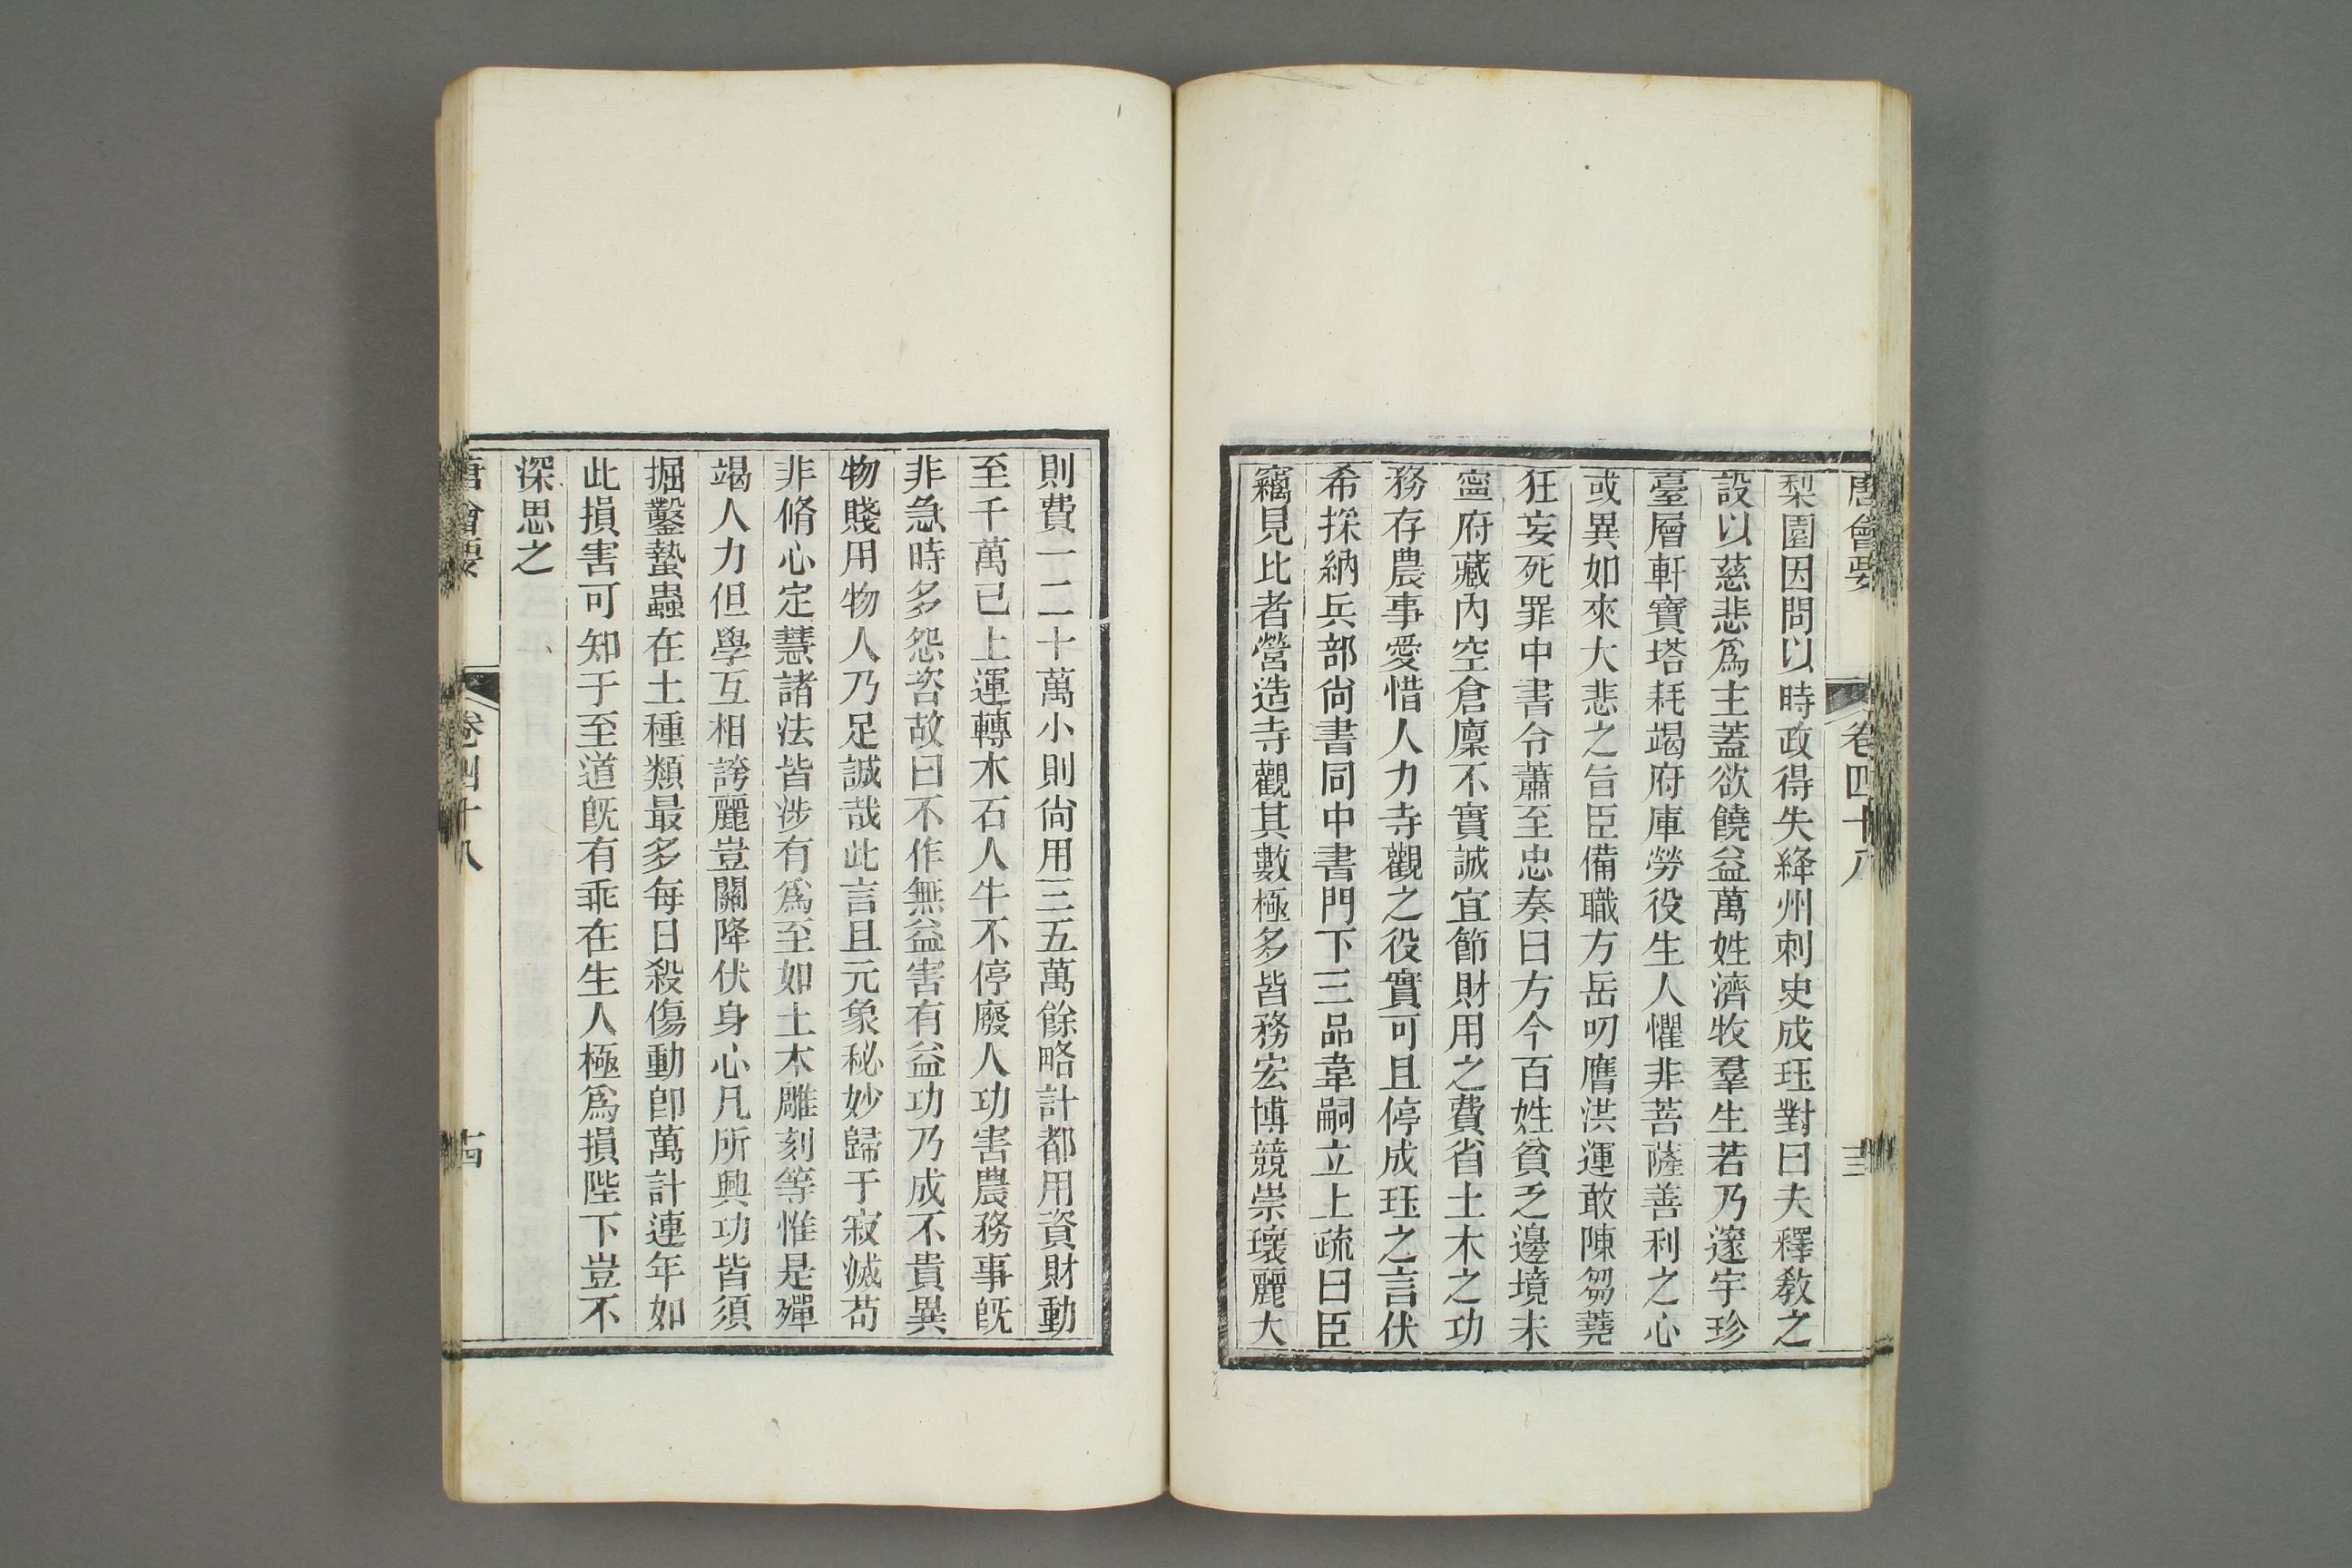 唐會要 卷四十八 十三
梨園因問以時政得失絳州刺史成珪對曰夫釋教之
設以慈悲爲主蓋欲饒益萬姓濟牧羣生若乃邃宇珍
臺層軒寶塔耗竭府庫勞役生人懼非菩薩善利之心
或異如來大悲之旨臣備職方岳叨膺洪運敢陳芻蕘
狂妄死罪中書令蕭至忠奏曰方今百姓貧乏邊境未
寧府藏內空倉廩不實誠宜節財用之費省土木之功
務存農事愛惜人力寺觀之役實可且停成珪之言伏
希採納兵部尙書同中書門下三品韋嗣立上疏曰臣
竊見比者營造寺觀其數極多皆務宏博競崇瓌麗大
則費一二十萬小則尙用三五萬餘略計都用資財動
至千萬已上運轉木石人牛不停廢人功害農務事旣
非急時多怨咨故曰不作無益害有益功乃成不貴異
物賤用物人乃足誠哉此言且元象秘妙歸于寂滅苟
非脩心定慧諸法皆涉有爲至如土木雕刻等惟是殫
竭人力但學互相誇麗豈關降伏身心凡所興功皆須
掘鑿蟄蟲在土種類最多每日殺傷動卽萬計連年如
此損害可知于至道旣有乖在生人極爲損陛下豈不
深思之
唐會要 卷四十八 十四